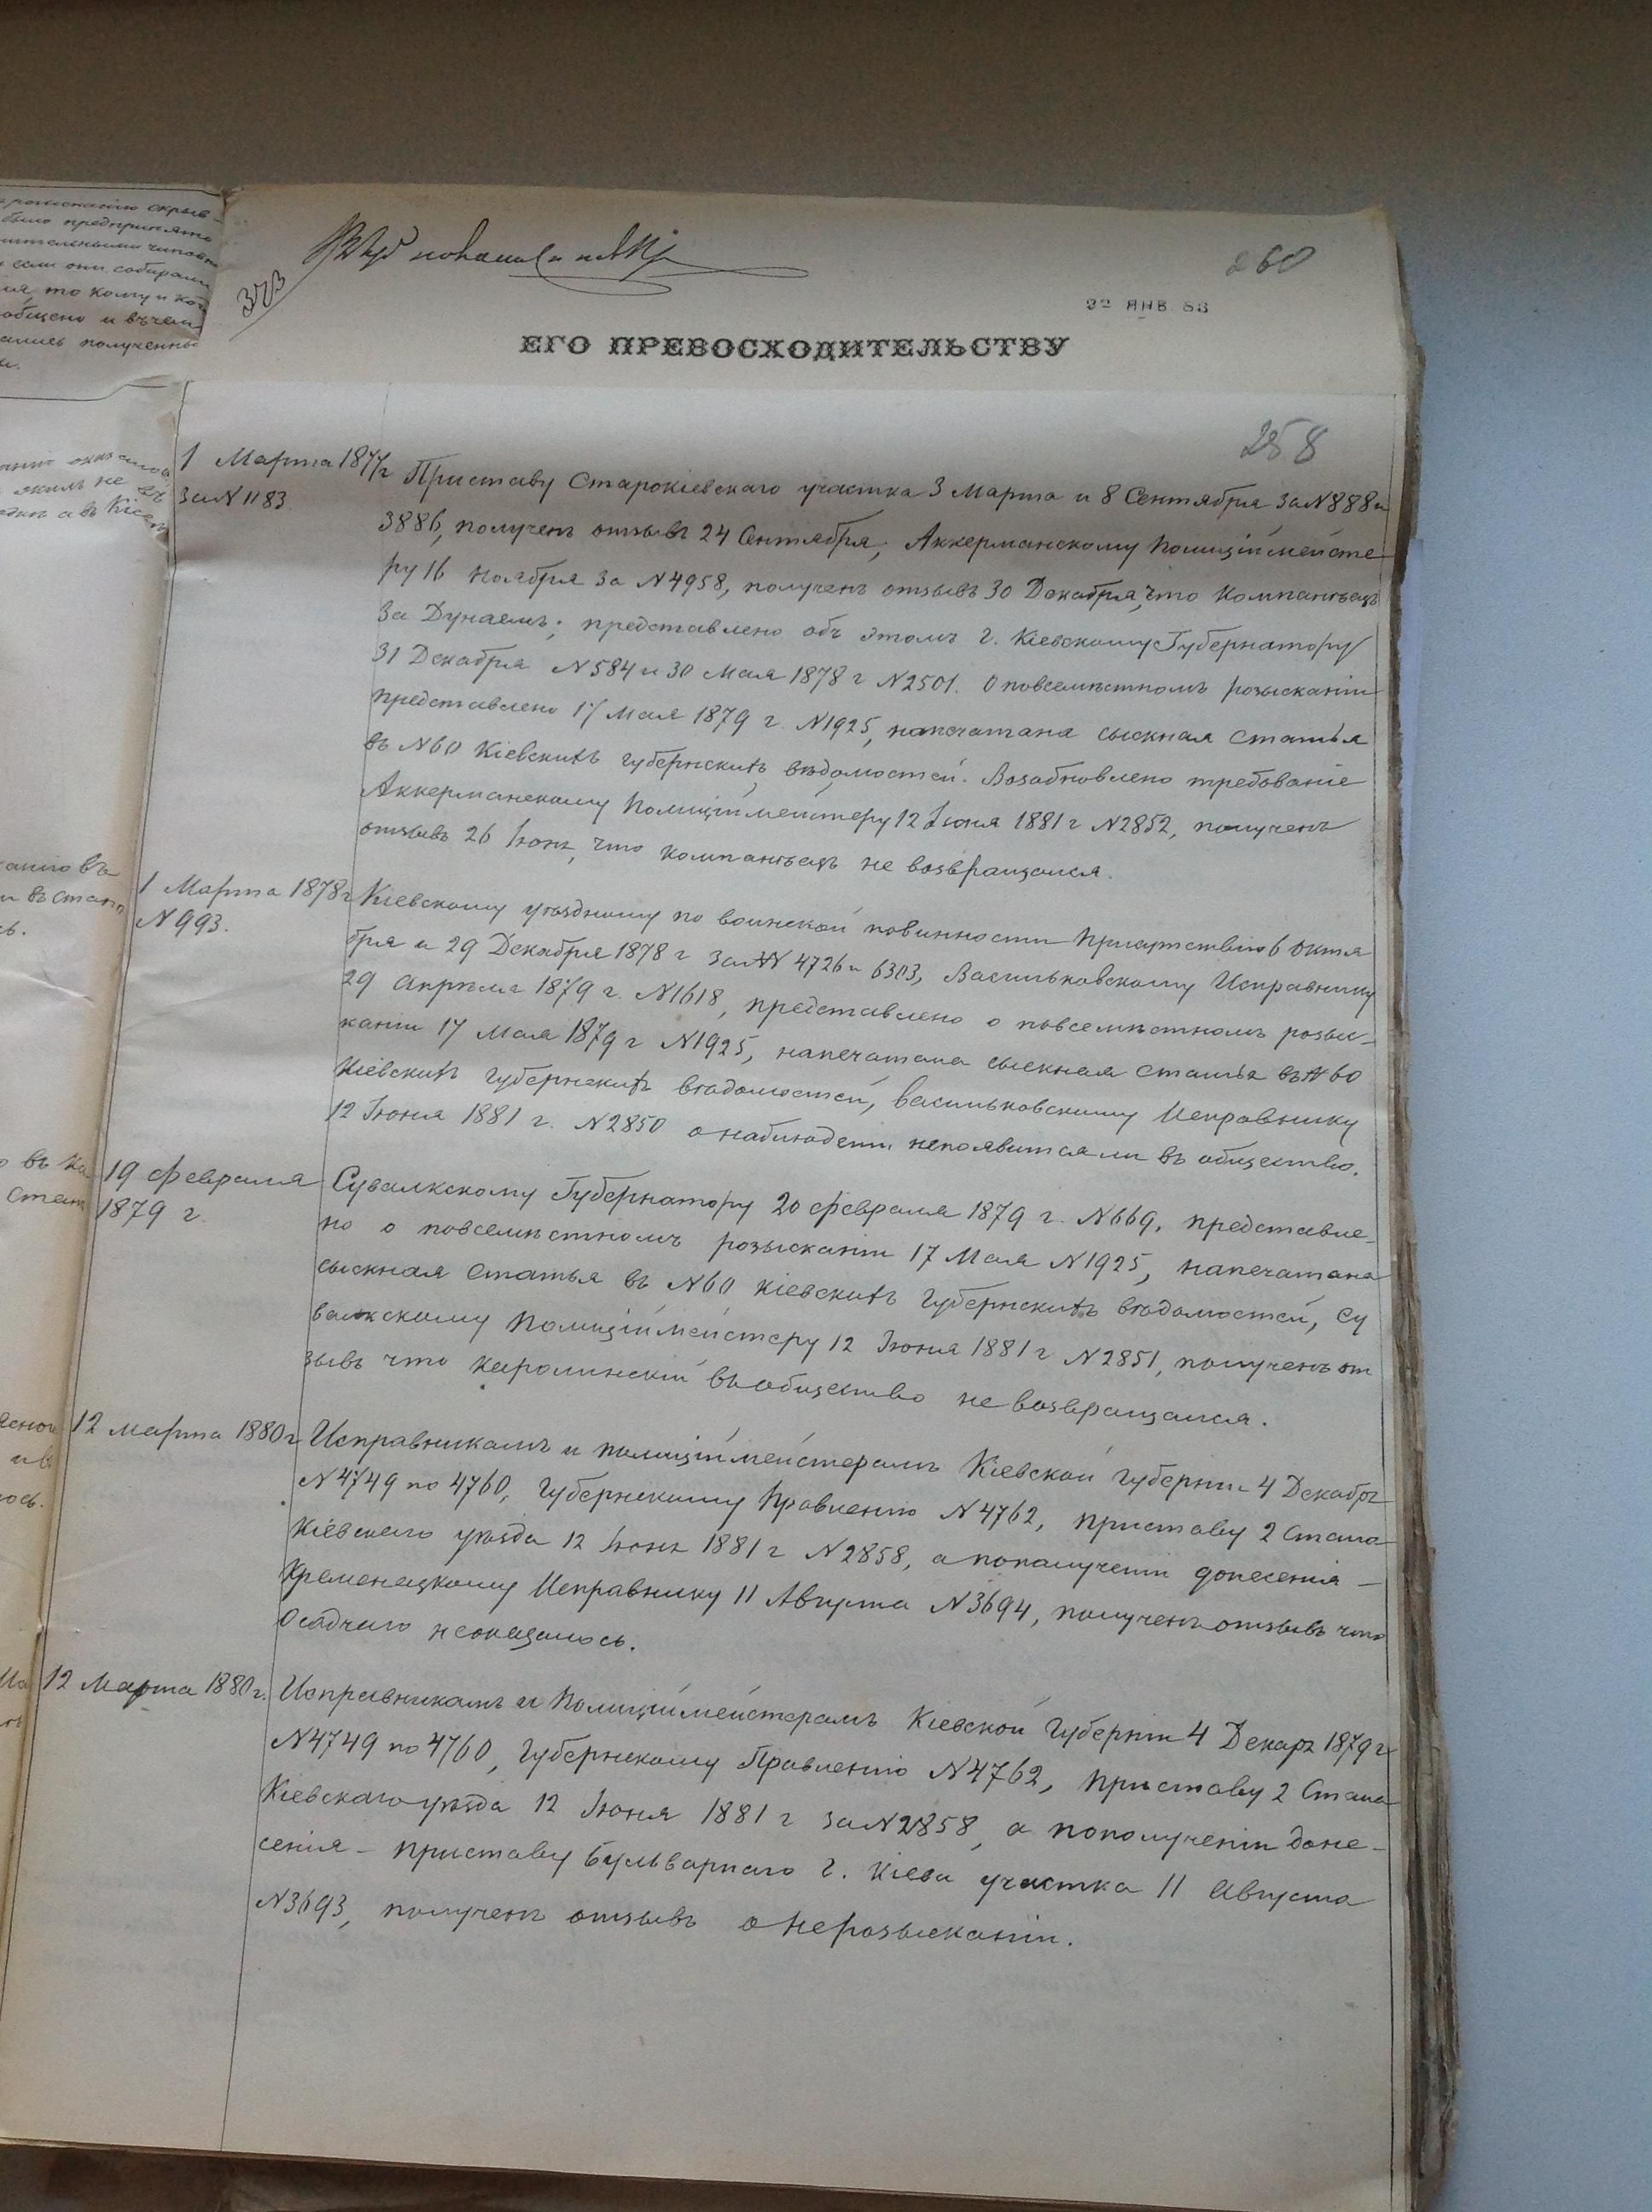 розысканію скрыв-
было предпринято
если они собирали
то кому и ко
общено и въ чем
ались полученны
373
260
22 ЯНВ. 83
ЕГО ПРЕВОСХОДИТЕЛЬСТВУ
258
1 Марта 1877 г
За N 1183.
Приставу Старокіевскаго участка 3 Марта и 8 Сентября за N 888 и
3886, полученъ отзывъ 24 Сентября; Аккерманскому Полиціймейсте-
ру 16 Ноября за N 4958, полученъ отзывъ 30 Декабря, что Компанѣецъ
за Дунаемъ; представлено объ этомъ г. Кіевскому Губернатору
31 Декабря N 584 и 30 Мая 1878 г N 2501. О повсемѣстномъ розысканіи
представлено 17 Мая 1879 г. N 1925, напечатана сыскная статья
въ N 60 Кіевскихъ Губернскихъ вѣдомостей. Возобновлено требованіе
Аккерманскому Полиціймейстеру 12 Іюня 1881 г N 2852, полученъ
отзывъ 26 Іюня, что Компанѣецъ не возвращался.
1 Марта 1878 г
N 993.
Кіевскому уѣздному по воинской повинности Присутствію 6 Октя
бря и 29 Декабря 1878 г за NN 4726 и 6303, Васильковскому Исправнику
29 Апрѣля 1879 г. N 1618, представлено о повсемѣстномъ розыс-
каніи 17 Мая 1879 г N 1925, напечатана сыскная статья въ N 60
Кіевскихъ Губернскихъ вѣдомостей, Васильковскому Исправнику
12 Іюня 1881 г. N 2850 о наблюденіи непоявится ли въ общество.
19 февраля
1879 г.
Сувалкскому Губернатору 20 февраля 1879 г. N 669, представле-
но о повсемѣстномъ розысканіи 17 Мая N 1925, напечатана
сыскная статья въ N 60 Кіевскихъ Губернскихъ вѣдомостей, Су
валкскому Полиціймейстеру 12 Іюня 1881 г N 2851, полученъ от
зывъ что Каролинскій въ общество не возвращался.
12 марта 1880 г
Исправникамъ и полиціймейстерамъ Кіевской губерніи 4 Декабря
N 4749 по 4760, Губернскому Правленію N 4762, приставу 2 стана
Кіевскаго уѣзда 12 Іюня 1881 г N 2858, а по полученіи донесенія -
Кременецкому Исправнику 11 Августа N 3694, полученъ отзывъ что
Осадчаго неоказалось.
12 Марта 1880 г.
Исправникамъ и Полиціймейстерамъ Кіевской Губерніи 4 Декаря 1879 г
N 4749 по 4760, Губернскому Правленію N 4762, приставу 2 Стана
Кіевскаго уѣзда 12 Іюня 1881 г за N 2858, а по полученіи доне-
сенія - приставу Бульварнаго г. Кіева участка 11 Августа
N 3693, полученъ отзывъ о нерозысканіи.